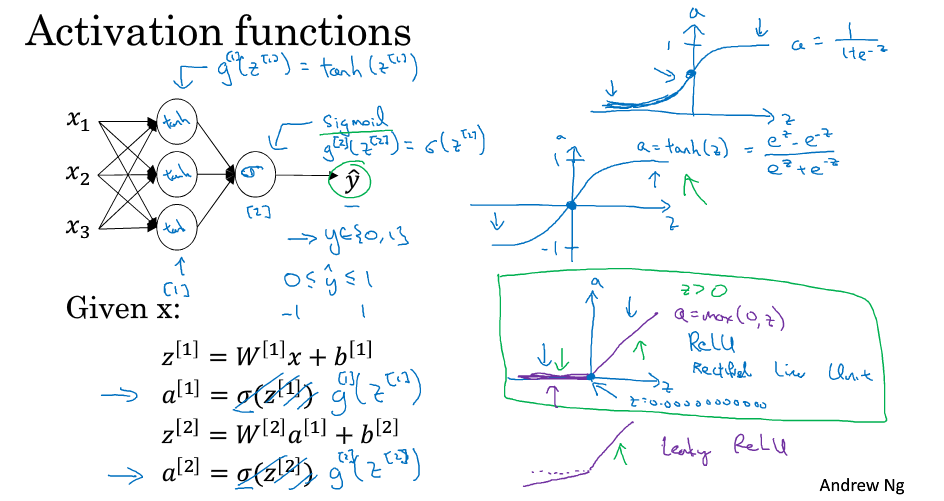 Activation functions
g^[1](z^[1]) = tanh(z^[1])
x₁
x₂
x₃
tanh
tanh
tanh
[1]
σ
[2]
sigmoid
g^[2](z^[2]) = σ(z^[2])
ŷ
→ y∈{0,1}
0 ≤ ŷ ≤ 1
-1 1
Given x:
z^[1] = W^[1]x + b^[1]
→ a^[1] = σ(z^[1]) g^[1](z^[1])
z^[2] = W^[2]a^[1] + b^[2]
→ a^[2] = σ(z^[2]) g^[2](z^[2])
a
1
z
a = 1/(1+e^-z)
a
1
-1
z
a = tanh(z) = (e^z - e^-z)/(e^z + e^-z)
a
z
z > 0
a = max(0, z)
ReLU
Rectified Linear Unit
z=0.00000000000
Leaky ReLU
Andrew Ng